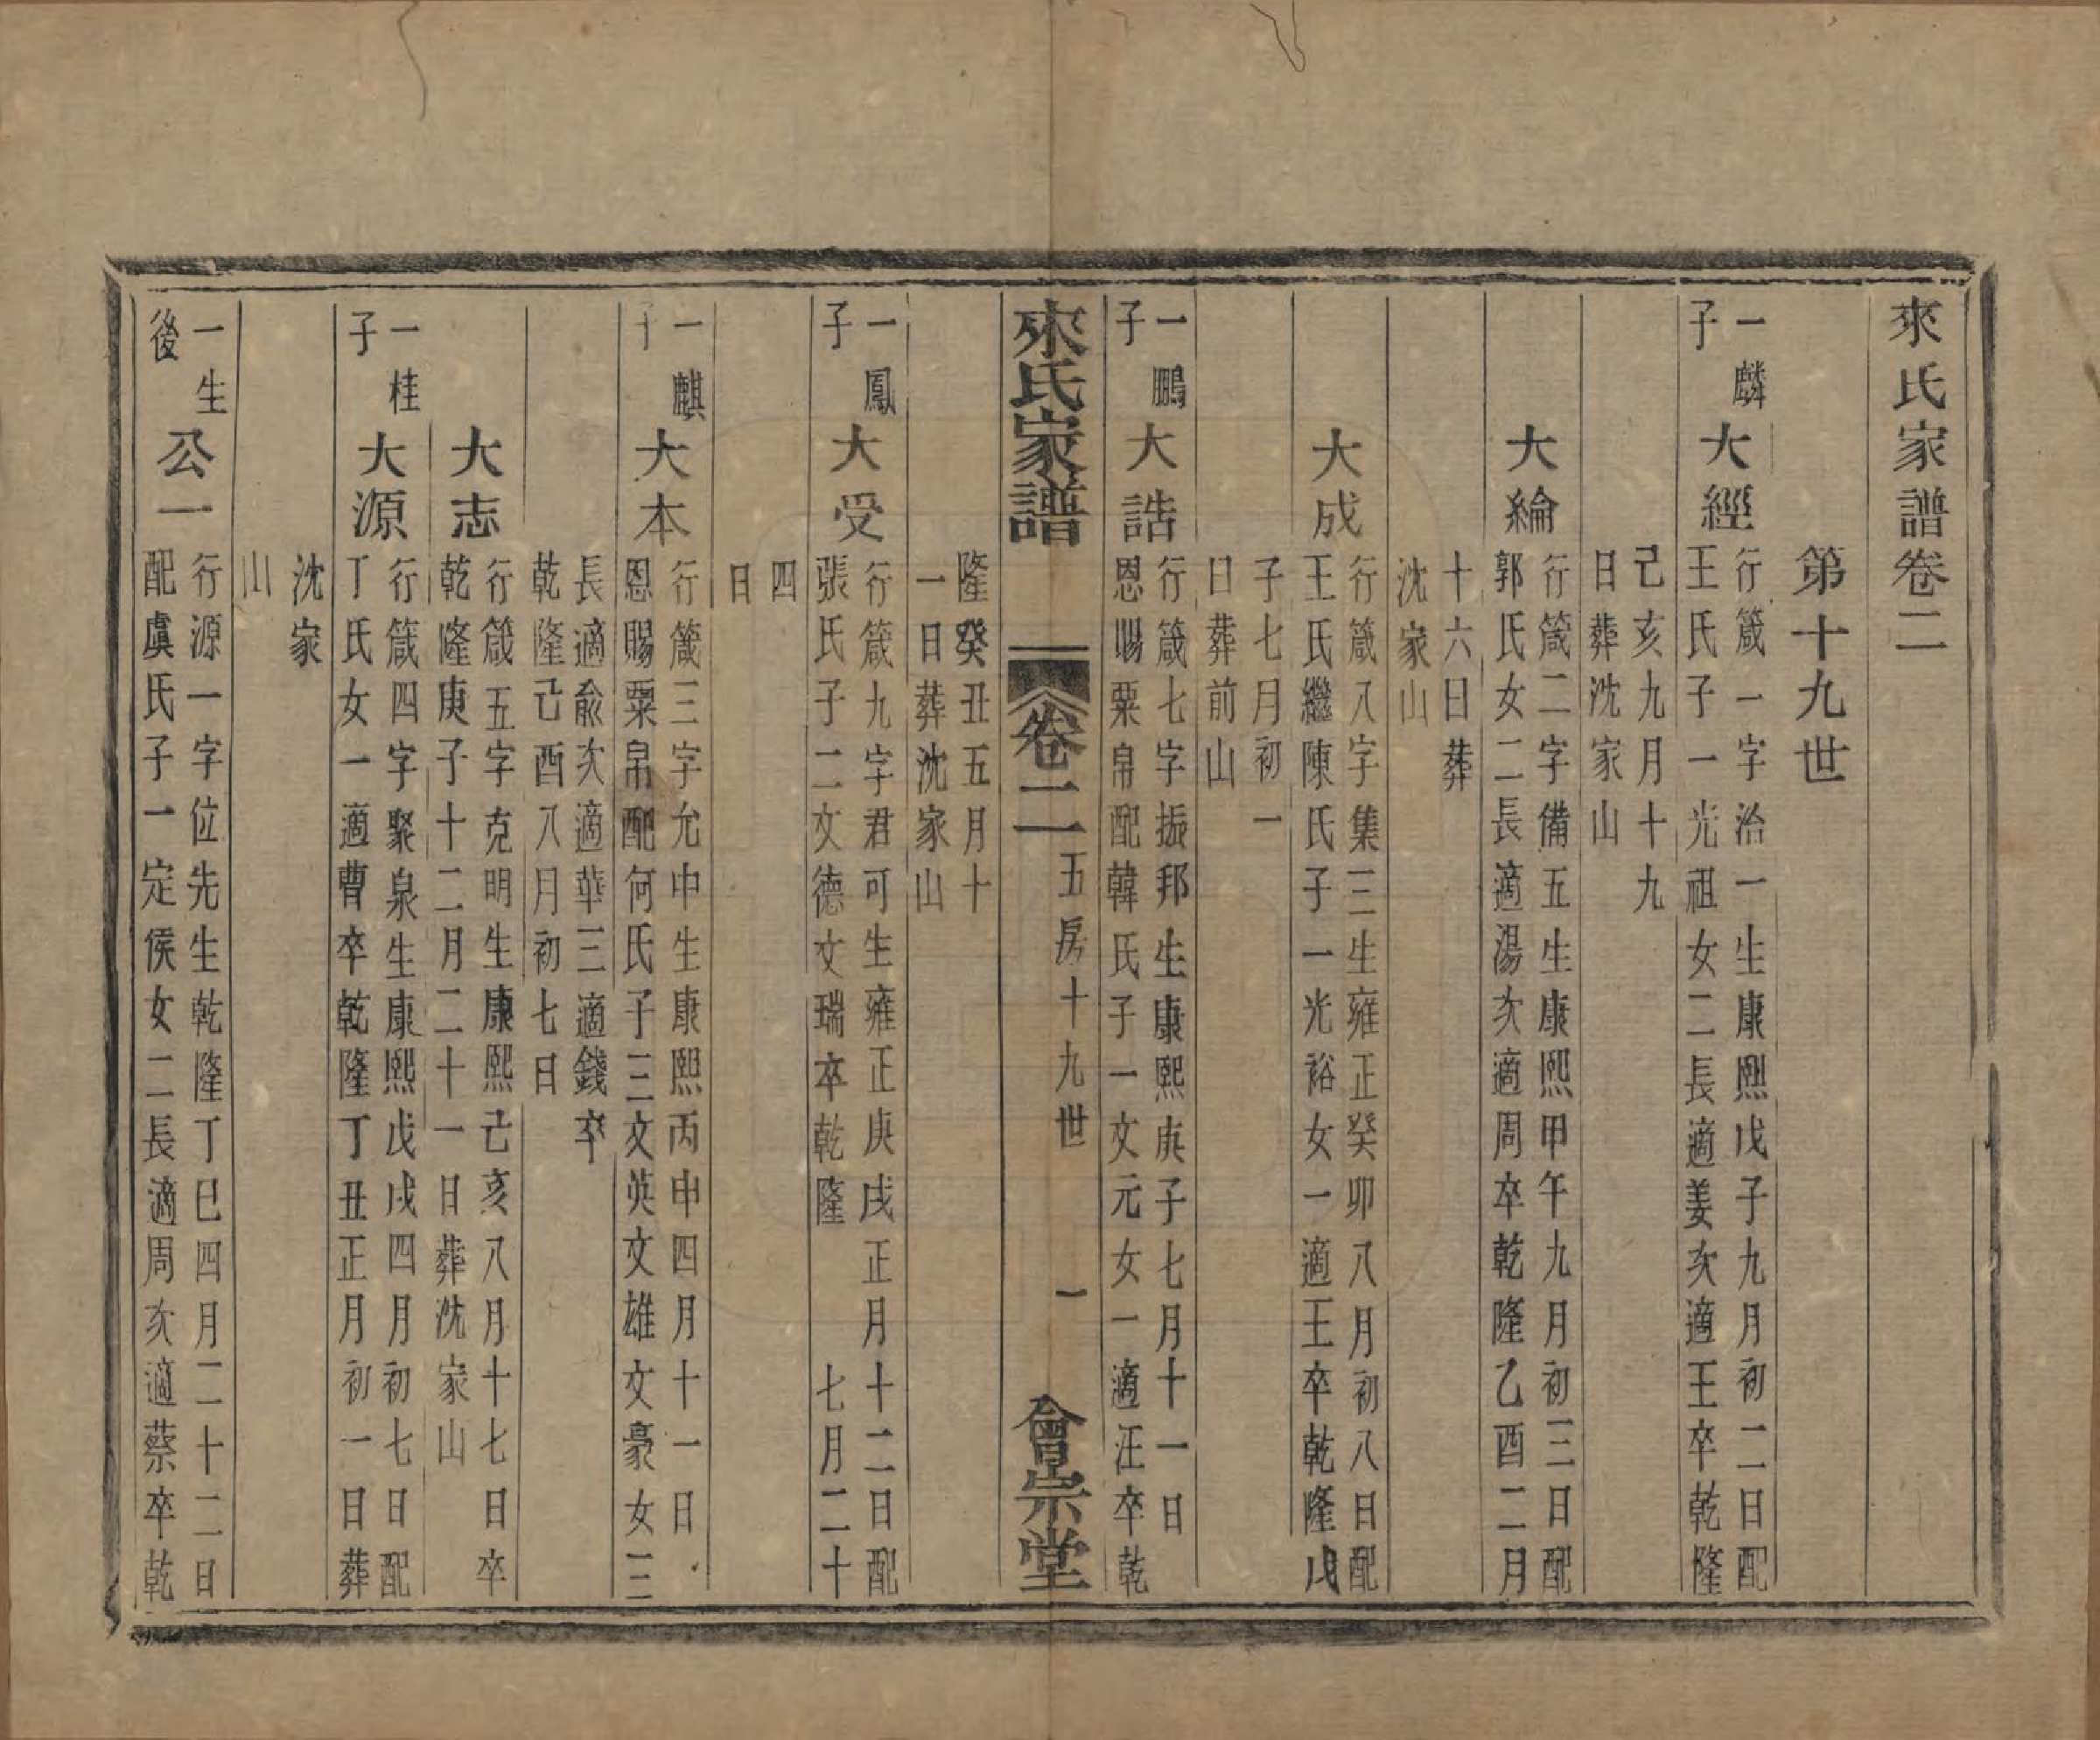 來氏家譜卷二
第十九世
一麟
子
大經
行箴一字治一生康熙戊子九月初二日配
王氏子一光祖女二長適姜次適王卒乾隆
己亥九月十九
日葬沈家山
大綸
行箴二字備五生康熙甲午九月初三日配
郭氏女二長適湯次適周卒乾隆乙酉二月
十六日葬
沈家山
大成
行箴八字集三生雍正癸卯八月初八日配
王氏繼陳氏子一光裕女一適王卒乾隆戊
子七月初一
日葬前山
一鵬
子
大誥
行箴七字振邦生康熙庚子七月十一日
恩賜粟帛配韓氏子一文元女一適汪卒乾
隆癸丑五月十
一日葬沈家山
來氏家譜
卷二
五房十九世
一
會宗堂
一鳳
子
大受
行箴九字君可生雍正庚戌正月十二日配
張氏子二文德文瑞卒乾隆 七月二十
四
日
一麒
子
大本
行箴三字允中生康熙丙申四月十一日
恩賜粟帛配何氏子三文英文雄文豪女三
長適俞次適華三適錢卒
乾隆己酉八月初七日
大志
行箴五字克明生康熙己亥八月十七日卒
乾隆庚子十二月二十一日葬沈家山
一桂
子
大源
行箴四字聚泉生康熙戊戌四月初七日配
丁氏女一適曹卒乾隆丁丑正月初一日葬
沈家
山
一生
後
公一
行源一字位先生乾隆丁巳四月二十二日
配虞氏子一定侯女二長適周次適蔡卒乾